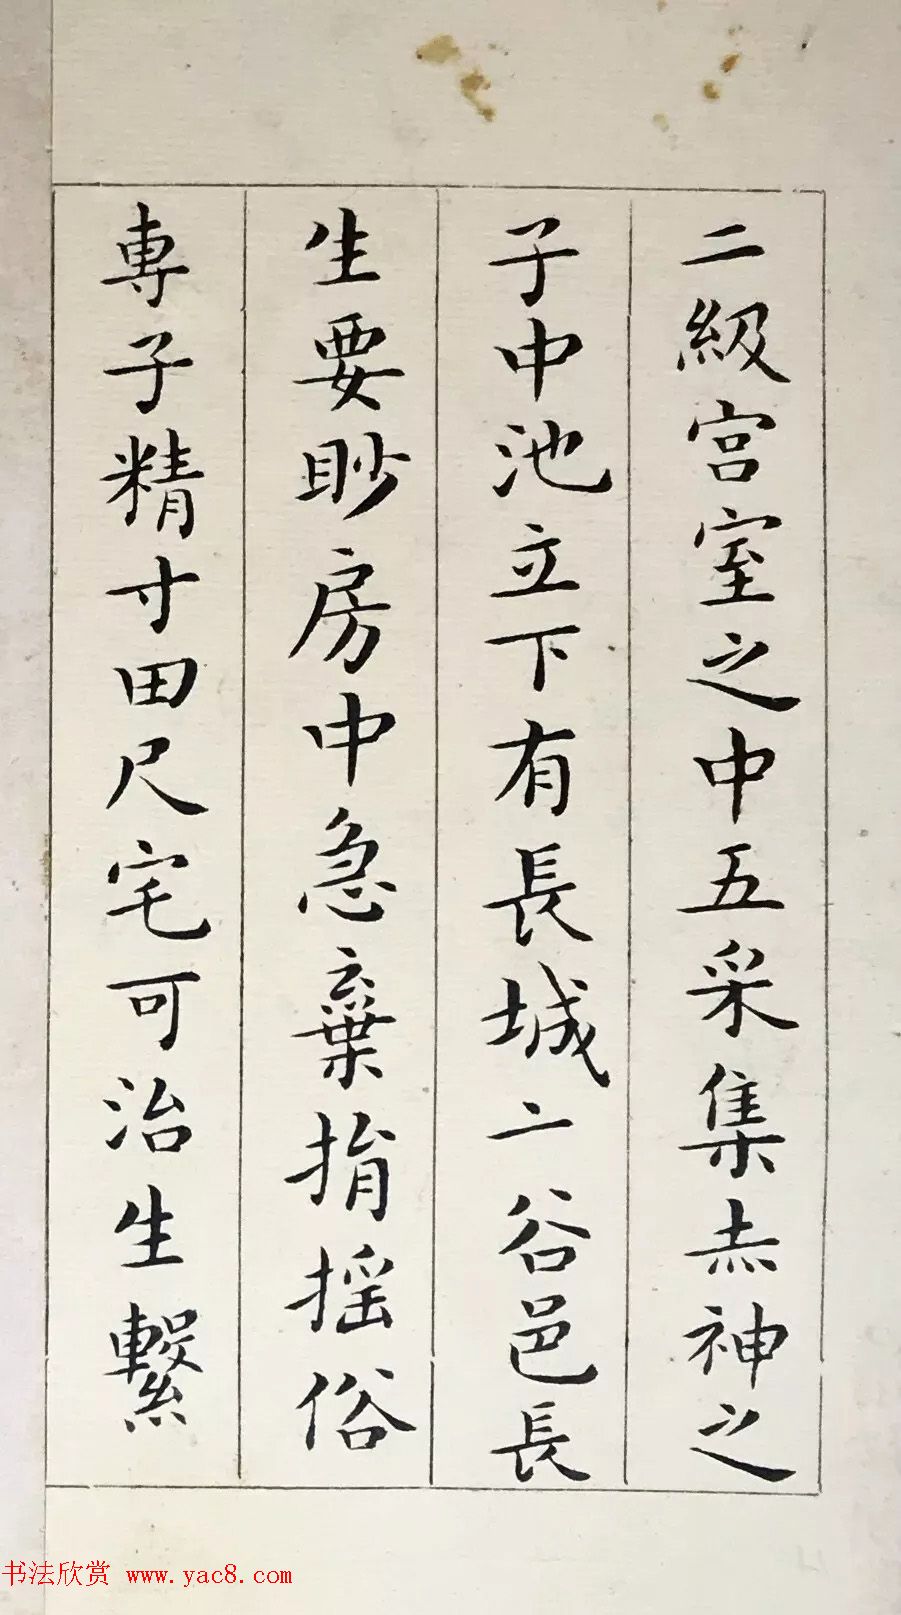 二級宮室之中五采集赤神之
子中池立下有長城二谷邑長
生要眇房中急棄捐搖俗
專子精寸田尺宅可治生繫
书法欣赏 www.yac8.com